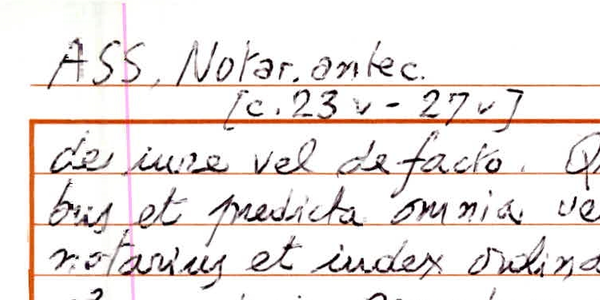 ASS, Notar. antec.
[c. 23 v - 27 v]
de iure vel de facto. Q
bus et predicta omnia ve
notarius et iudex ordina